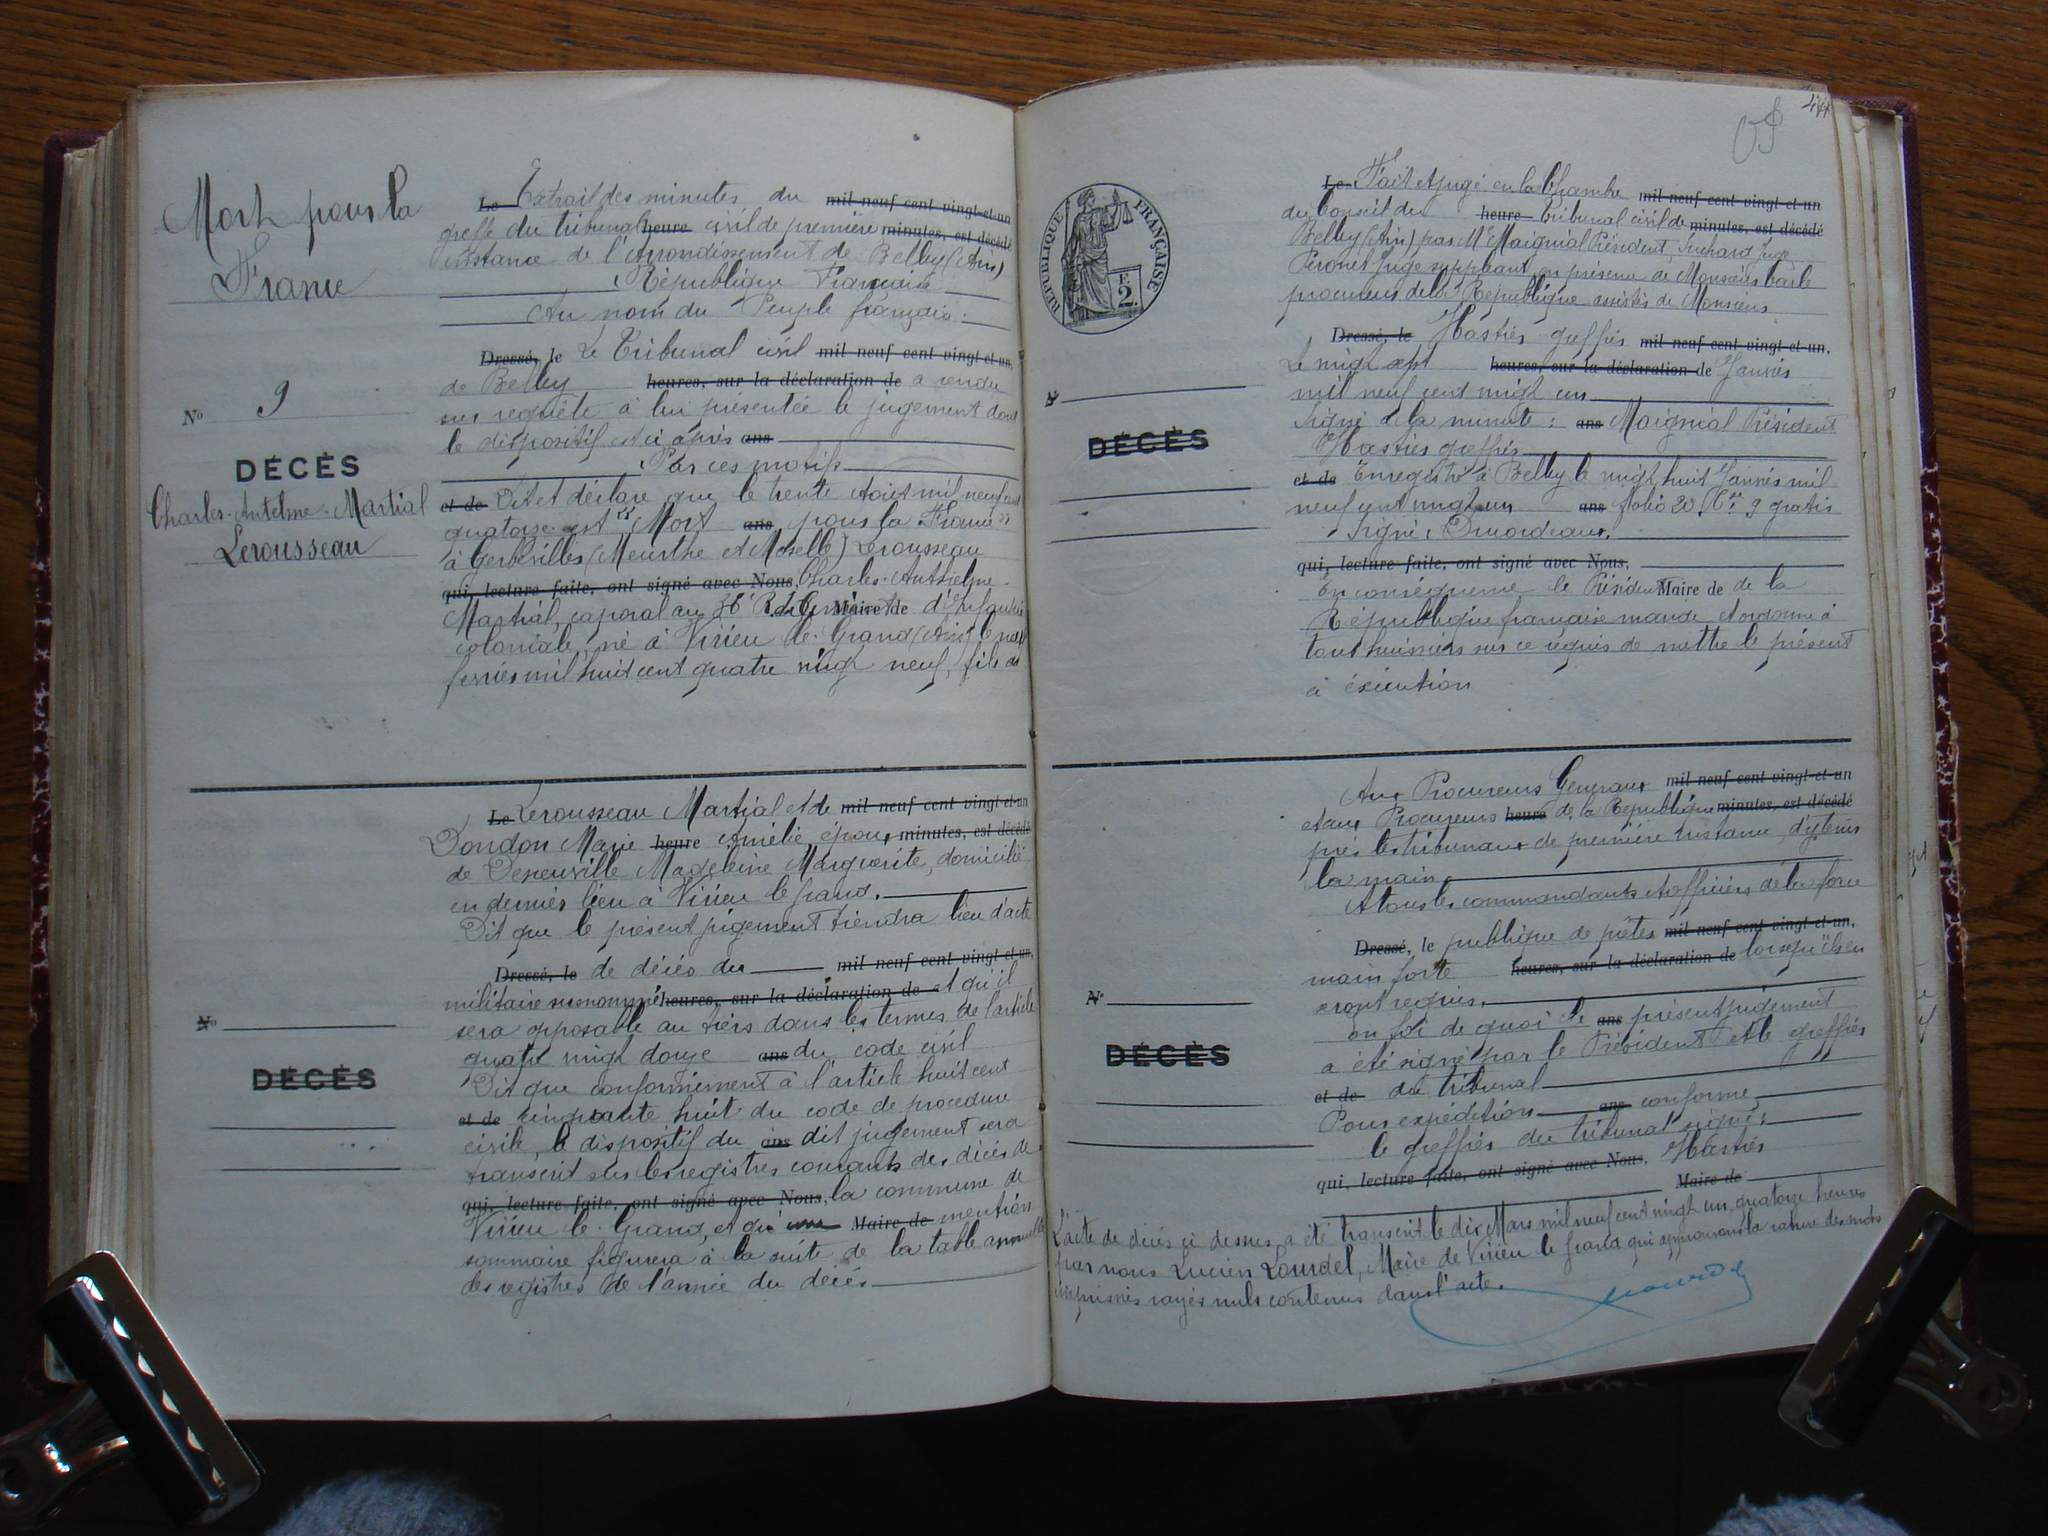 Mort pour la
France
No 9
DÉCÈS
Charles-Antelme-Martial
Lerousseau
Le Extrait des minutes du mil neuf cent vingt-et-un
greffe du tribunal heure civil de première minutes, est décédé
instance de l'arrondissement de Belley (Ain)
République Française
Au nom du Peuple français.
Dressé, le Le Tribunal civil mil neuf cent vingt-et-un,
de Belley heures, sur la déclaration de a rendu
sur requête à lui présentée le jugement dont
le dispositif est ci après ans
Par ces motifs
et de Dit et déclare que le trente Août mil neuf cent
quatorze est "Mort ans pour la France"
à Gerbéviller (Meurthe et Moselle) Lerousseau
qui, lecture faite, ont signé avec Nous, Charles-Anthelme-
Martial, caporal au Régiment Maire de d'Infanterie
coloniale, né à Virieu le-Grand (Ain) le neuf
février mil huit cent quatre vingt neuf, fils de
Le Lerousseau Martial et de mil neuf cent vingt-et-un
Dondon Marie heure Amélie, époux minutes, est décédé
de Deneuville Magdeleine Marguerite, domicilié
en dernier lieu à Virieu le grand.
Dit que le présent jugement tiendra lieu d'acte
Dressé, le de décès du mil neuf cent vingt-et-un,
militaire susnommé heures, sur la déclaration de et qu'il
sera opposable au tiers dans les termes de l'article
quatre vingt douze ans du code civil
Dit que conformément à l'article huit cent
et de cinquante huit du code de procedure
civile, le dispositif du ans dit jugement sera
transcrit sur les registres courants des décès de
qui, lecture faite, ont signé avec Nous, la commune de
Virieu le-Grand, et que une Maire de mention
sommaire figurera à la suite de la table annuelle
des registres de l'année du décès
No
DÉCÈS
RÉPUBLIQUE FRANÇAISE
F.
2.
Le Fait et jugé en la Chambre mil neuf cent vingt-et-un
du Conseil du heure Tribunal civil de minutes, est décédé
Belley (Ain) par Mr Maignial Président, Juge,
Juge suppléant, en présence de Monsieur
procureur de la République assistés de Monsieur
Dressé, le Hastier greffier mil neuf cent vingt-et-un,
Le vingt sept heures, sur la déclaration de Janvier
mil neuf cent vingt un
Signé à la minute: ans Maignial Président
Hastier greffier
et de Enregistré à Belley le vingt huit Janvier mil
neuf cent vingt un ans folio 20 Cse 9 gratis
Signé:
qui, lecture faite, ont signé avec Nous,
En conséquence le Président Maire de de la
République française mande et ordonne à
tout huissiers sur ce requis de mettre le présent
à éxécution
N
DÉCÈS
Aux Procureurs Généraux mil neuf cent vingt-et-un
et aux Procureurs heure de la République minutes, est décédé
près les tribunaux de première instance, d'y tenir
la main
A tous les commandants et officiers de la force
Dressé, le publique de prêter mil neuf cent vingt-et-un,
main forte heures, sur la déclaration de lorsqu'ils en
seront requis.
en foi de quoi le ans présent jugement
a été signé par le Président et le greffier
et de du tribunal
Pour expédition ans conforme,
le greffier du tribunal signé:
qui, lecture faite, ont signé avec Nous, Hastier
Maire de
N
DÉCÈS
L'acte de décès ci dessus a été transcrit le dix Mars mil neuf cent vingt un, quatorze heures
par nous Lucien Lourdel, Maire de Virieu le grand qui approuvons la rature des mots
imprimés rayés nuls contenus dans l'acte.